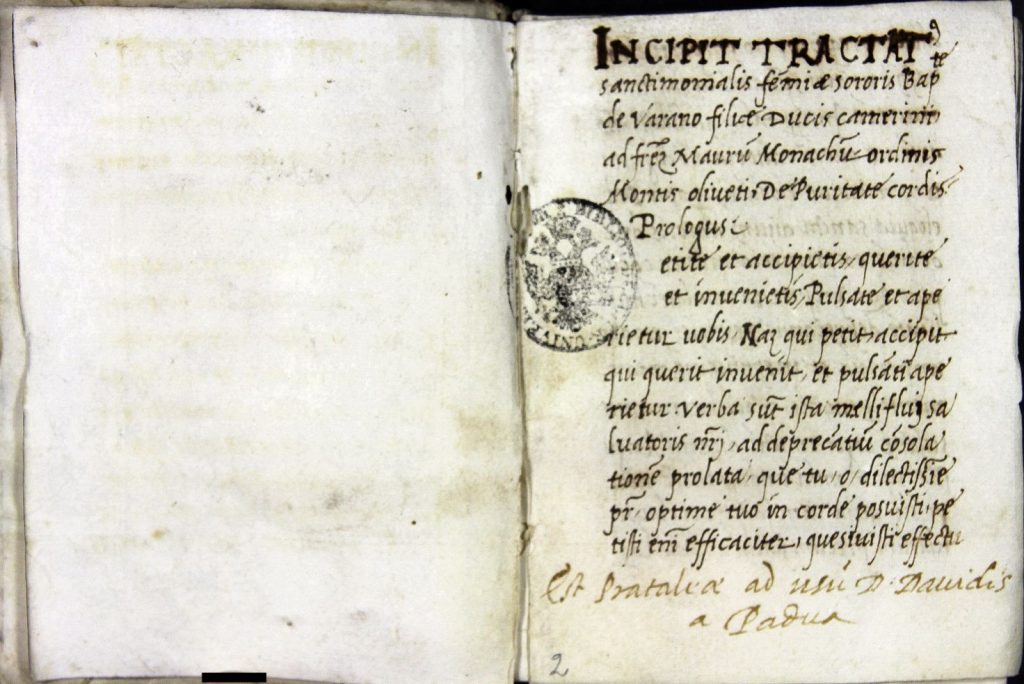 INCIPIT TRACTAT⁹
sanctimonialis femiæ sororis Bapte
de Varano filiæ Ducis camerini
ad frez Maurũ Monachũ ordinis
Montis oliveti, De Puritate cordis
Prologus
etite et accipietis, querite
et invenietis, Pulsate et ape
rietur vobis, Naz qui petit accipit
qui querit invenit, et pulsãti ape
rietur. Verba sũt ista melliflui sa
luatoris nr̃i, ad deprecãtiũ cõsola
tionẽ prolata, que tu, o, dilectissĩe
pr̃ optime tuo in corde posuisti, pe
tisti em̃ efficaciter, quesivisti effectu
Est Prataleæ ad usũ D. Davidis
a Padua
2